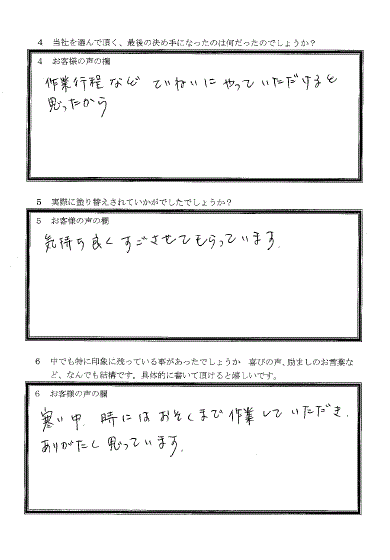 4 当社を選んで頂く、最後の決め手になったのは何だったのでしょうか？
4 お客様の声の欄
作業行程など ていねいにやっていただけると
思ったから
5 実際に塗り替えされていかがでしたでしょうか？
5 お客様の声の欄
気持ち良くすごさせてもらっています.
6 中でも特に印象に残っている事があったでしょうか 喜びの声、励ましのお言葉な
ど、なんでも結構です。具体的に書いて頂けると嬉しいです。
6 お客様の声の欄
寒い中、時にはおそくまで作業していただき、
ありがたく思っています.